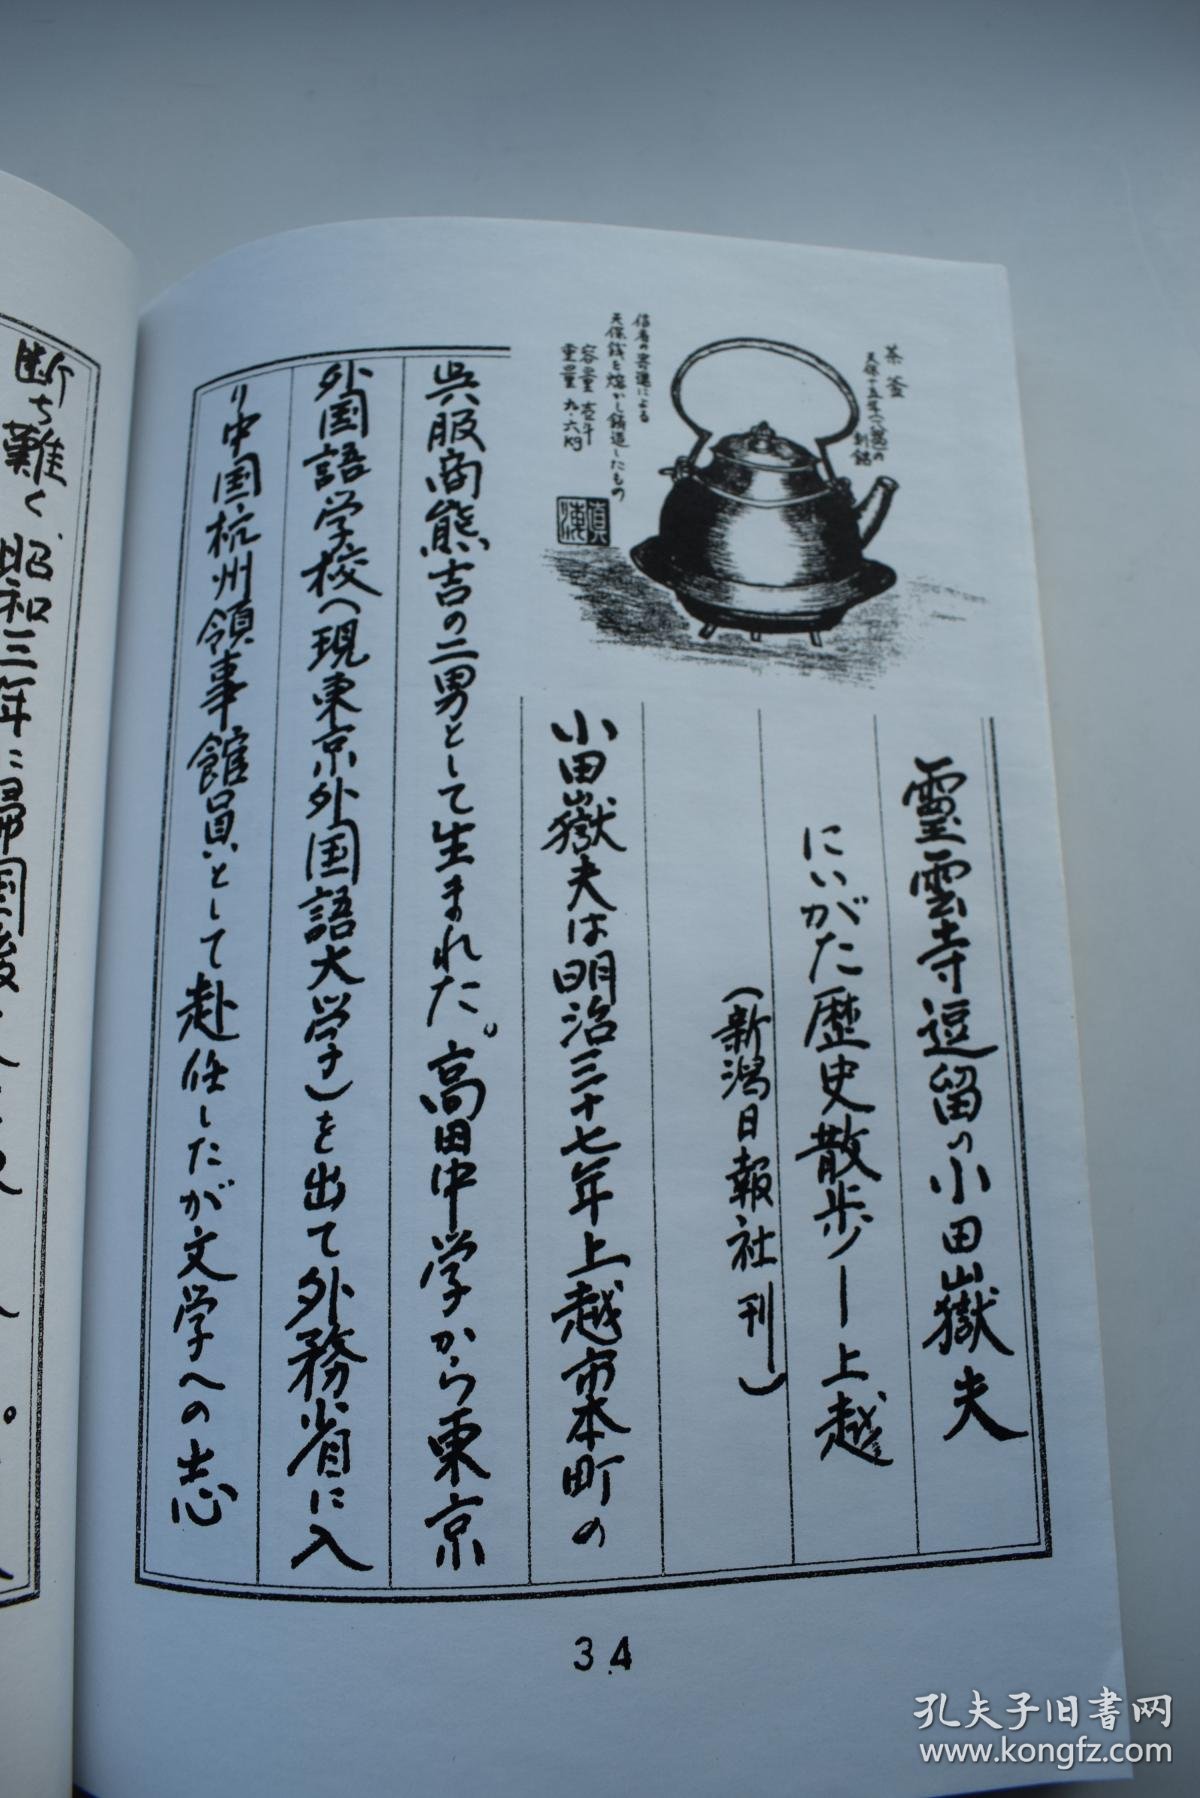 茶釜
天保十五年
信者の寄進による
天保銭を熔かし鋳造したもの
容量 壱斗
重量 九・六kg
霊雲寺逗留の小田嶽夫
にいがた歴史散歩ー上越
(新潟日報社刊)
小田嶽夫は明治三十七年上越市本町の
呉服商熊吉の二男として生まれた。高田中学から東京
外国語学校へ現東京外国語大学)を出て外務省に入
り中国、杭州領事館員として赴任したが文学への志
断ち難く、昭和三年に帰国後
34
孔夫子旧书网
www.kongfz.com